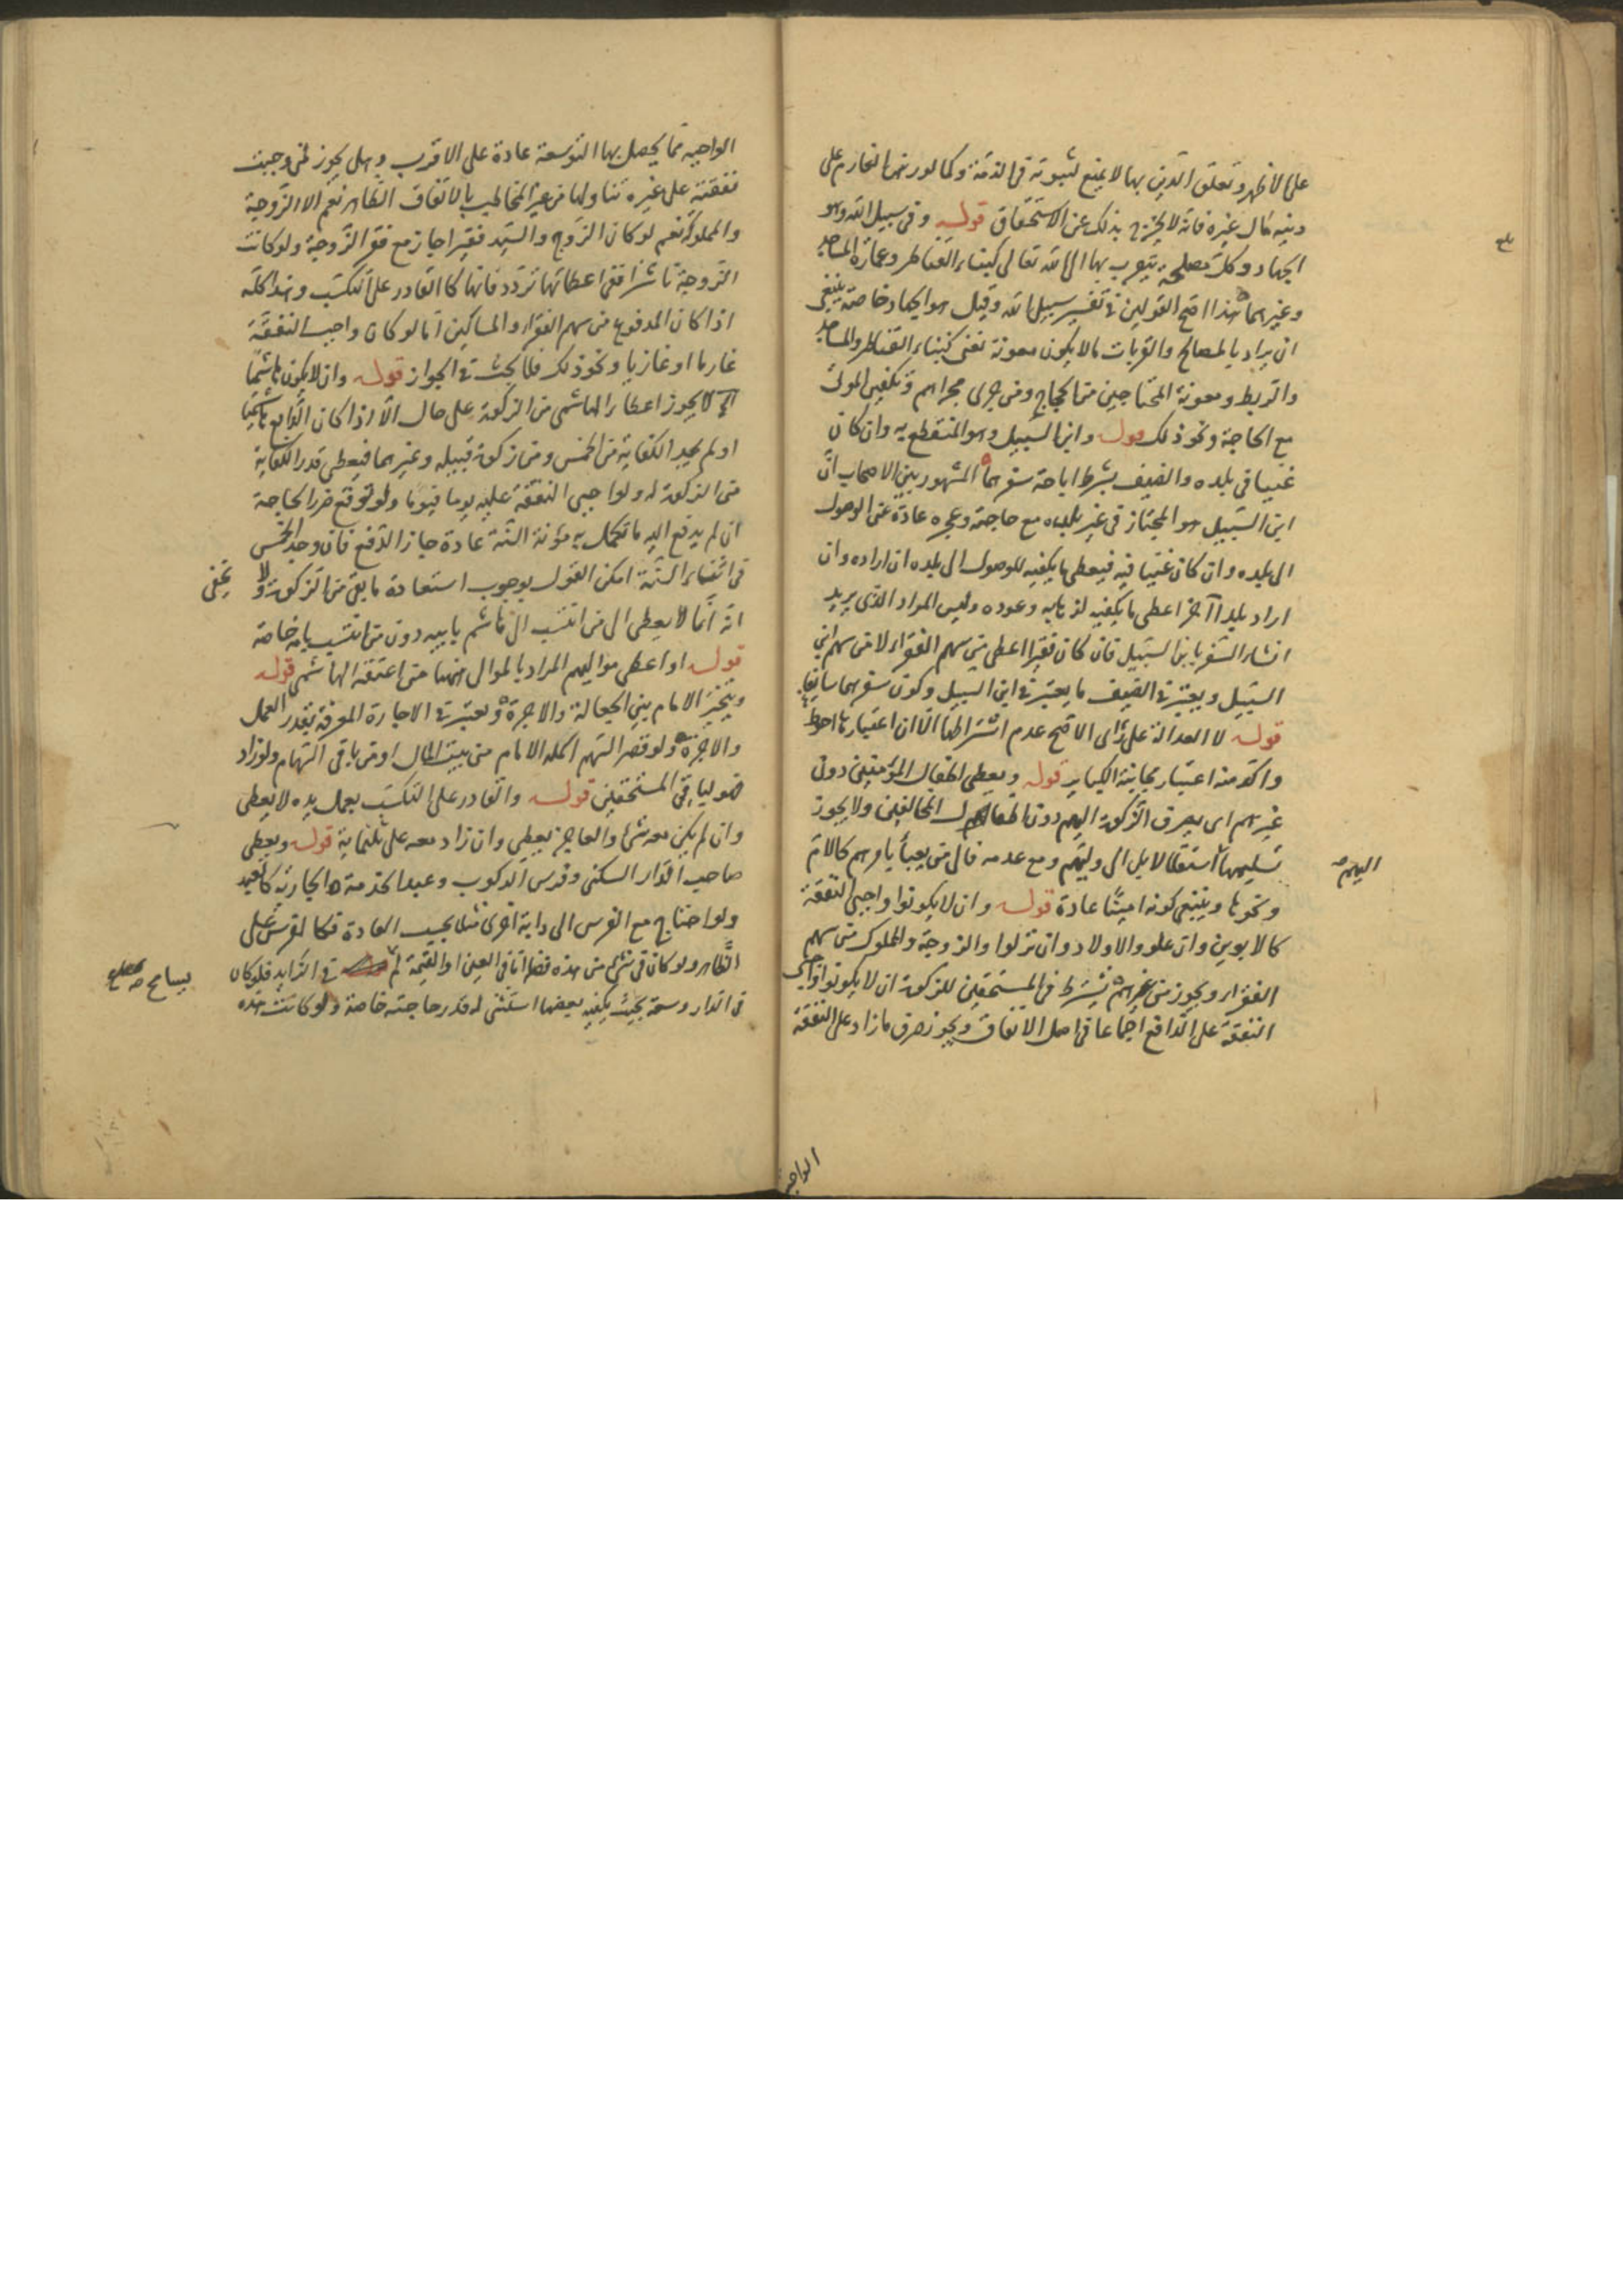 على الاظهر وتعلق الدين بها لا يمنع لثبوته في الذمة وكما لو رضى الغارم على
دينه مال غيره فانه لا يخرج بذلك عن الاستحقاق قوله وفي سبيل الله وهو
الجهاد وكل مصلحة يتقرب بها الى الله تعالى كبناء القناطر وعمارة المساجد
وغيرهما هذا اصح القولين في تفسير سبيل الله وقيل هو الجهاد خاصة ينبغي
ان يراد بالمصالح والقربات ما لا يكون معونة لغني كبناء القناطر والمساجد
والربط ومعونة المحتاجين من الحجاج ومن جرى مجراهم وتكفين الموتى
مع الحاجة ونحو ذلك قوله وابن السبيل وهو المنقطع به وان كان
غنيا في بلده والضيف بشرط اباحة سفرهما المشهور بين الاصحاب ان
ابن السبيل هو المجتاز في غير بلده مع حاجته وعجزه عادة عن الوصول
الى بلده وان كان غنيا فيه فيعطى ما يكفيه للوصول الى بلده ان اراده وان
اراد بلدا آخر اعطي ما يكفيه لذهابه وعوده وليس المراد الذي يريد
انشاء السفر بابن السبيل فان كان فقيرا اعطي من سهم الفقراء لا من سهم ابن
السبيل ويعتبر في الضيف ما يعتبر في ابن السبيل وكون سفرهما سايغا
قوله لا العدالة على رأي الاصح عدم اشتراطها الا ان اعتبارها احوط
واكد منه اعتبار مجانبة الكباير قوله ويعطى اطفال المؤمنين دون
غيرهم اي يصرف الزكوة اليهم دون اطفال المخالفين ولا يجوز
تسليمها استقلالا بل الى وليهم ومع عدمه فالى من يعبأ بامرهم كالام
اليهم صح
ونحوها وينبغي كونه امينا عادة قوله وان لا يكونوا واجبي النفقة
كالابوين وان علو والاولاد وان نزلوا والزوجة والمملوك من سهم
الفقراء ويجوز من غيرهم يشترط في المستحقين للزكوة ان لا يكونوا واجبي
النفقة على الدافع اجماعا في اصل الانفاق ويجوز صرف ما زاد على النفقة
الواجبة
الواجبة مما يحصل بها التوسعة عادة على الاقرب وهل يجوز لمن وجبت
نفقته على غيره تناولها من غير المخاطب بالانفاق الظاهر نعم الا الزوجة
والمملوك نعم لو كان الزوج والسيد فقيرا جاز مع فقر الزوجة ولو كانت
الزوجة ناشزا ففي اعطائها تردد فانها كالقادر على التكسب وهذا كله
اذا كان المدفوع من سهم الفقراء والمساكين اما لو كان واجب النفقة
غارما او غازيا ونحو ذلك فلا بحث في الجواز قوله وان لا يكون هاشميا
لا يجوز اعطاء الهاشمي من الزكوة على حال الا اذا كان الدافع هاشميا
او لم يجد الكفاية من الخمس ومن زكوة قبيله وغيرهما فيعطى قدر الكفاية
من الزكوة له ولواجبي النفقة عليه يوما فيوما ولو توقع ضرر الحاجة
ان لم يدفع اليه ما تكمل به مؤنة السنة عادة جاز الدفع فان وجد الخمس
في اثناء السنة امكن القول بوجوب استعادة ما بقي من الزكوة ولا يخفى
انه انما لا يعطى الى من انتسب الى هاشم بابيه دون من انتسب بامه خاصة
قوله او اعطي مواليهم المراد بالموالي هنا من اعتقه الهاشمي قوله
ويتخير الامام بين الجعالة والاجرة ويعتبر في الاجارة المعرفة بقدر العمل
والاجرة ولو قصر السهم اكمله الامام من بيت المال او من باقي السهام ولو زاد
فهو لباقي المستحقين قوله والقادر على التكسب بعمل يده لا يعطى
وان لم يكن معه شئ والعاجز يعطى وان زاد معه على ثلثماية قوله ويعطى
صاحب الدار السكنى وفرس الركوب وعبد الخدمة والجارية كالعبد
ولو احتاج مع الفرس الى دابة اخرى مثلا بحسب العادة فكالفرس على
الظاهر ولو كان في شئ من هذه فضل اما في العين او القيمة لم يسامح في الزايد فلو كان
في الدار وسعة بحيث يكفيه بعضها استثني له قدر حاجته خاصة ولو كانت هذه